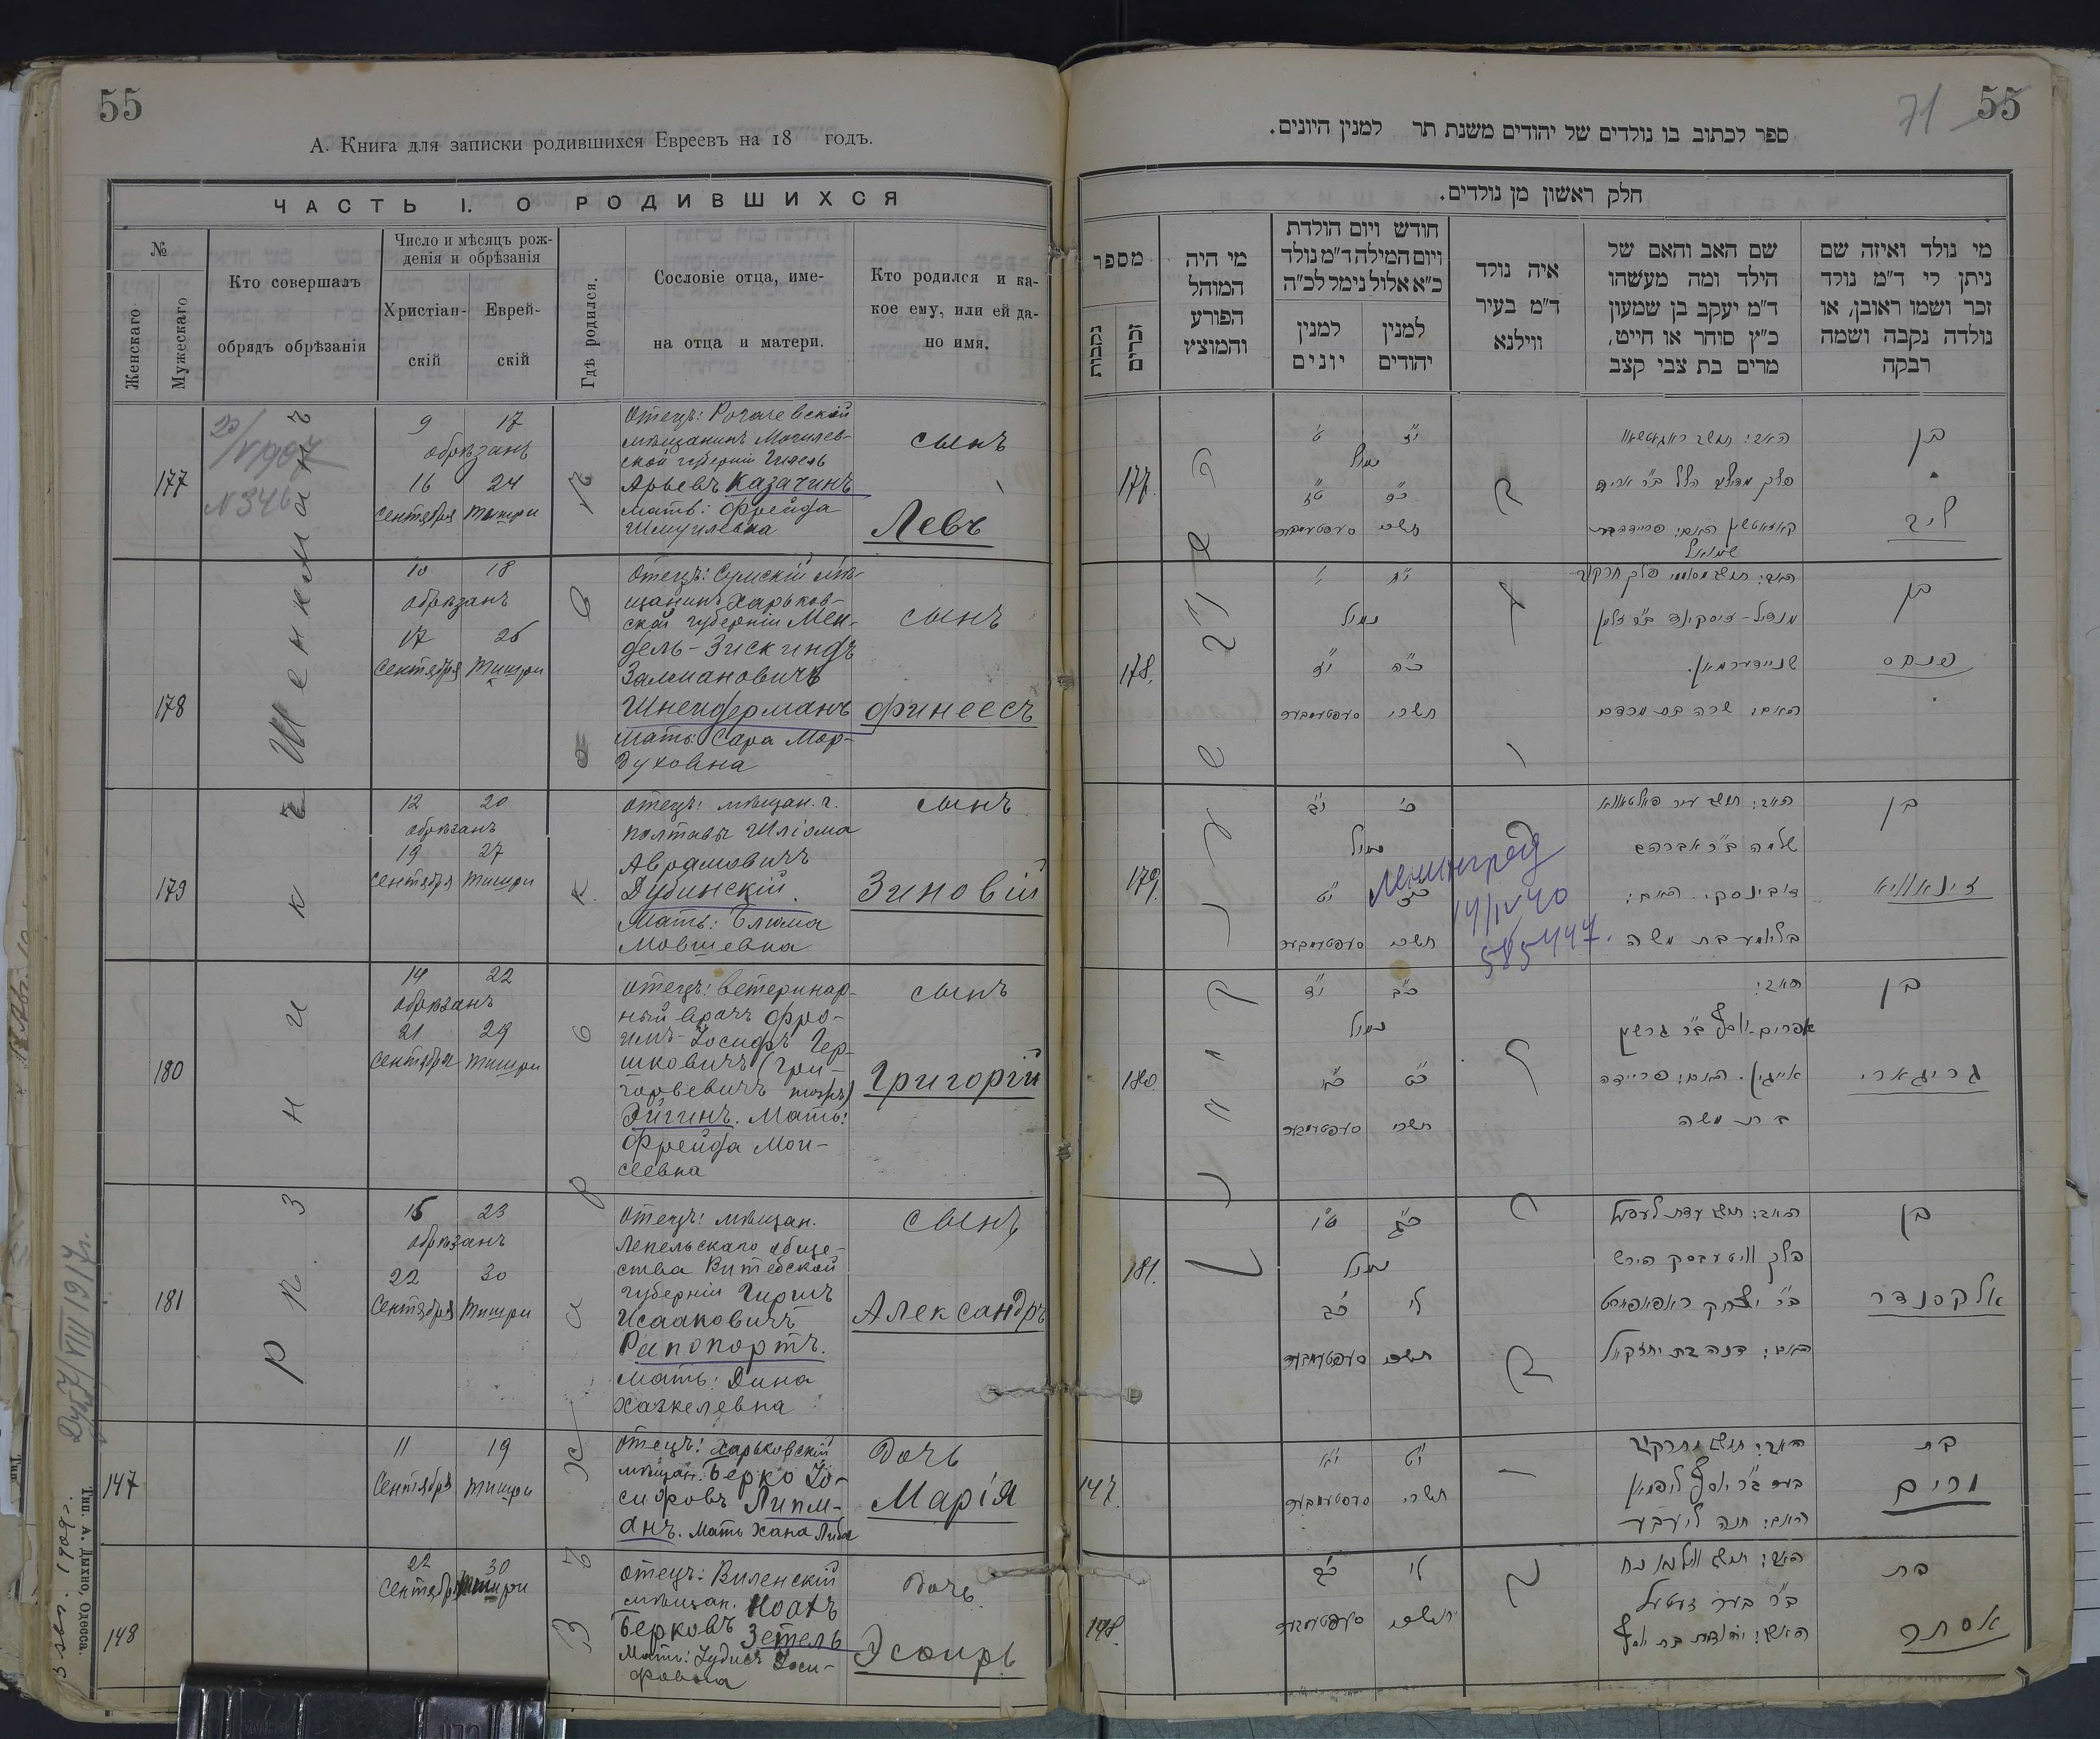 55
А. Книга для записки родившихся Евреевъ на 18 годъ.
ЧАСТЬ I. О РОДИВШИХСЯ
№
Женскаго
Мужескаго
Кто совершалъ
обрядъ обрѣзанія
Число и мѣсяцъ рож-
денія и обрѣзанія
Христіан-
скій
Еврей-
скій
Гдѣ родился.
Сословіе отца, име-
на отца и матери.
Кто родился и ка-
кое ему, или ей да-
но имя.
177
№ 346
9 17
обрѣзанъ
16 24
Сентября Тишри
Отецъ: Рогачевскій
мѣщанинъ Могилев-
ской губерніи Гилель
Арьевъ Казачинъ
мать: Фрейда
Шмуилевна
сынъ
Левъ
178
10 18
обрѣзанъ
17 25
Сентября Тишри
Отецъ: Сумскій мѣ-
щанинъ Харьков-
ской губерніи Мен-
дель-Зискиндъ
Залмановичъ
Шнейдерманъ
Мать: Сара Мор-
духовна
сынъ
Финеесъ
179
12 20
обрѣзанъ
19 27
Сентября Тишри
Отецъ: мѣщан. г.
Полтавы Шліома
Абрамовичъ
Дубинскій.
Мать: Блюма
Мовшевна
сынъ
Зиновій
180
14 22
обрѣзанъ
21 29
Сентября Тишри
Отецъ: ветеринар-
ный врачъ Фро-
имъ-Іосифъ Гер-
шковичъ (Гри-
горьевичъ тожъ)
Эйгинъ. Мать:
Фрейда Мои-
сеевна
сынъ
Григорій
181
15 23
обрѣзанъ
22 30
Сентября Тишри
Отецъ: мѣщан.
Лепельскаго обще-
ства Витебской
губерніи Гиршъ
Исааковичъ
Рапопортъ.
Мать: Дина
Хаскелевна
сынъ
Александръ
147
11 19
Сентября Тишри
Отецъ: Харьковскій
мѣщан. Берко Іо-
сифовъ Липм-
анъ. Мать Хана Либа
Дочь
Марія
148
22 30
Сентября Тишри
Отецъ: Виленскій
мѣщан. Ноахъ
Берковъ Зетель
Мать: Іудисъ Іоси-
фовна
Дочь
Эсѳирь
Тип. А. Дыхно, Одесса.
71
55
ספר לכתוב בו נולדים של יהודים משנת תר למנין היונים.
חלק ראשון מן נולדים.
מספר
נקבות
זכרים
מי היה
המוהל
הפורע
והמוצץ
חודש ויום הולדת
ויום המילה ד"מ נולד
כ"א אלול נימל לכ"ה
למנין
יונים
למנין
יהודים
איה נולד
ד"מ בעיר
ווילנא
שם האב והאם של
הילד ומה מעשהו
ד"מ יעקב בן שמעון
כ"ץ סוחר או חייט,
מרים בת צבי קצב
מי נולד ואיזה שם
ניתן לי ד"מ נולד
זכר ושמו ראובן, או
נולדה נקבה ושמה
רבקה
177.
נימול
בן
ליב
178.
נימול
שניידערמאן.
האם: שרה בת מרדכי
בן
פנחס
179.
נימול
שלמה ב"ר אברהם
דובינסקי. האם:
בליומע בת משה
בן
זינאוויא
Ленинград
14/IV 40
585447.
180.
נימול
האב:
אפרים-יוסף ב"ר גרשון
אייגין. האם: פריידה
בת משה
בן
גריגארי
181.
נימול
ב"ר יצחק ראפאפורט
האם: דינה בת יחזקאל
בן
אלקסנדר
147.
בת
מרים
148.
בת
אסתר